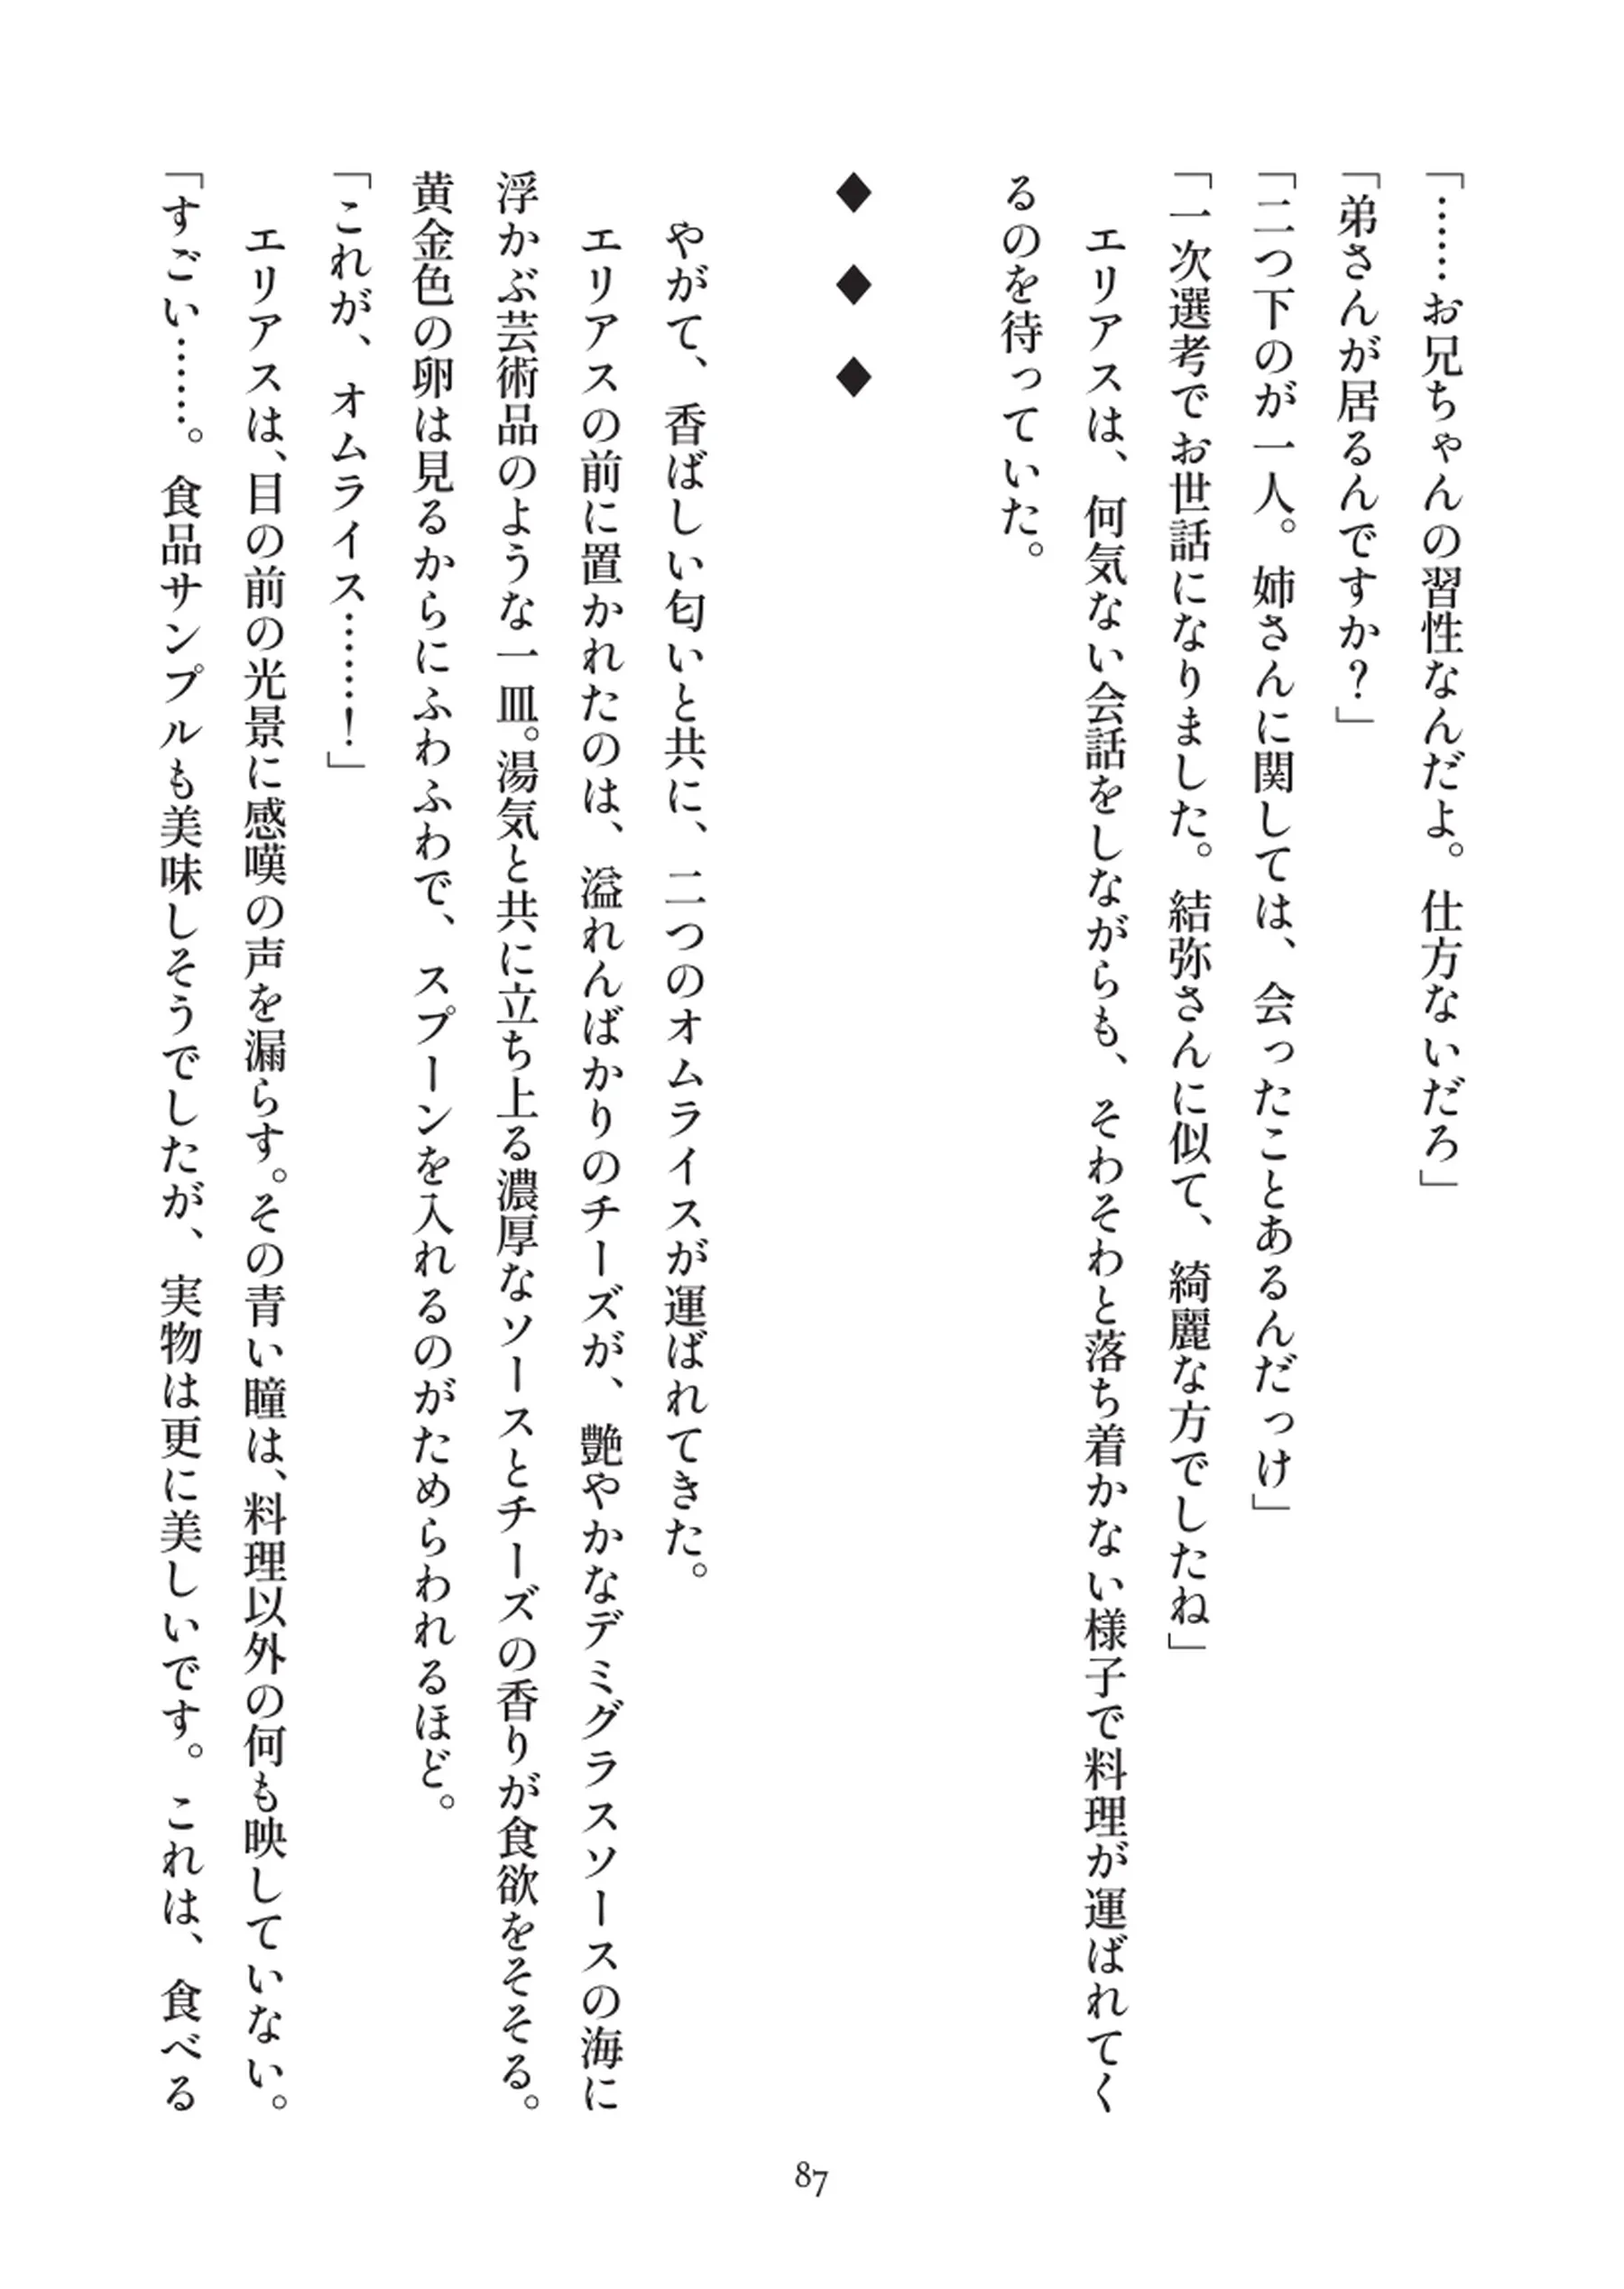 「……お兄ちゃんの習性なんだよ。仕方ないだろ」
「弟さんが居るんですか？」
「二つ下のが一人。姉さんに関しては、会ったことあるんだっけ」
「一次選考でお世話になりました。結弥さんに似て、綺麗な方でしたね」
　エリアスは、何気ない会話をしながらも、そわそわと落ち着かない様子で料理が運ばれてく
るのを待っていた。
◆　◆　◆
　やがて、香ばしい匂いと共に、二つのオムライスが運ばれてきた。
　エリアスの前に置かれたのは、溢れんばかりのチーズが、艶やかなデミグラスソースの海に
浮かぶ芸術品のような一皿。湯気と共に立ち上る濃厚なソースとチーズの香りが食欲をそそる。
黄金色の卵は見るからにふわふわで、スプーンを入れるのがためらわれるほど。
「これが、オムライス………！」
　エリアスは、目の前の光景に感嘆の声を漏らす。その青い瞳は、料理以外の何も映していない。
「すごい………。食品サンプルも美味しそうでしたが、実物は更に美しいです。これは、食べる
87